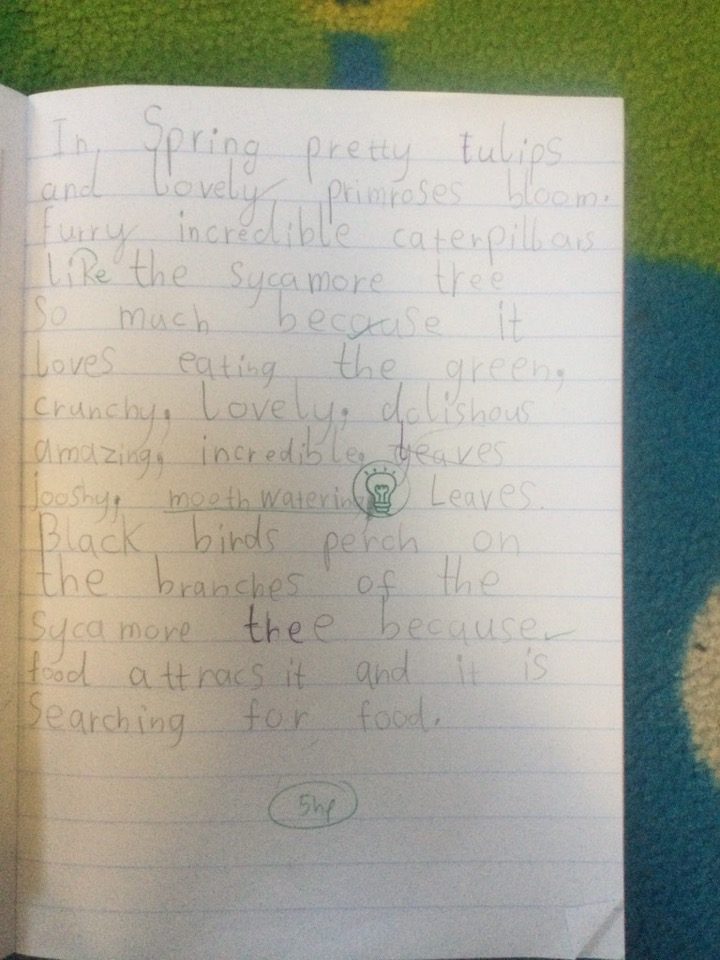 In Spring pretty tulips
and lovely primroses bloom.
furry incredible caterpillars
like the sycamore tree
So much because it
loves eating the green,
crunchy, lovely, dalishous
amazing, incredible, leaves
jooshy, moeth watering Leaves.
Black birds perch on
the branches of the
sycamore thee because
food attracs it and it is
Searching for food.
5hp